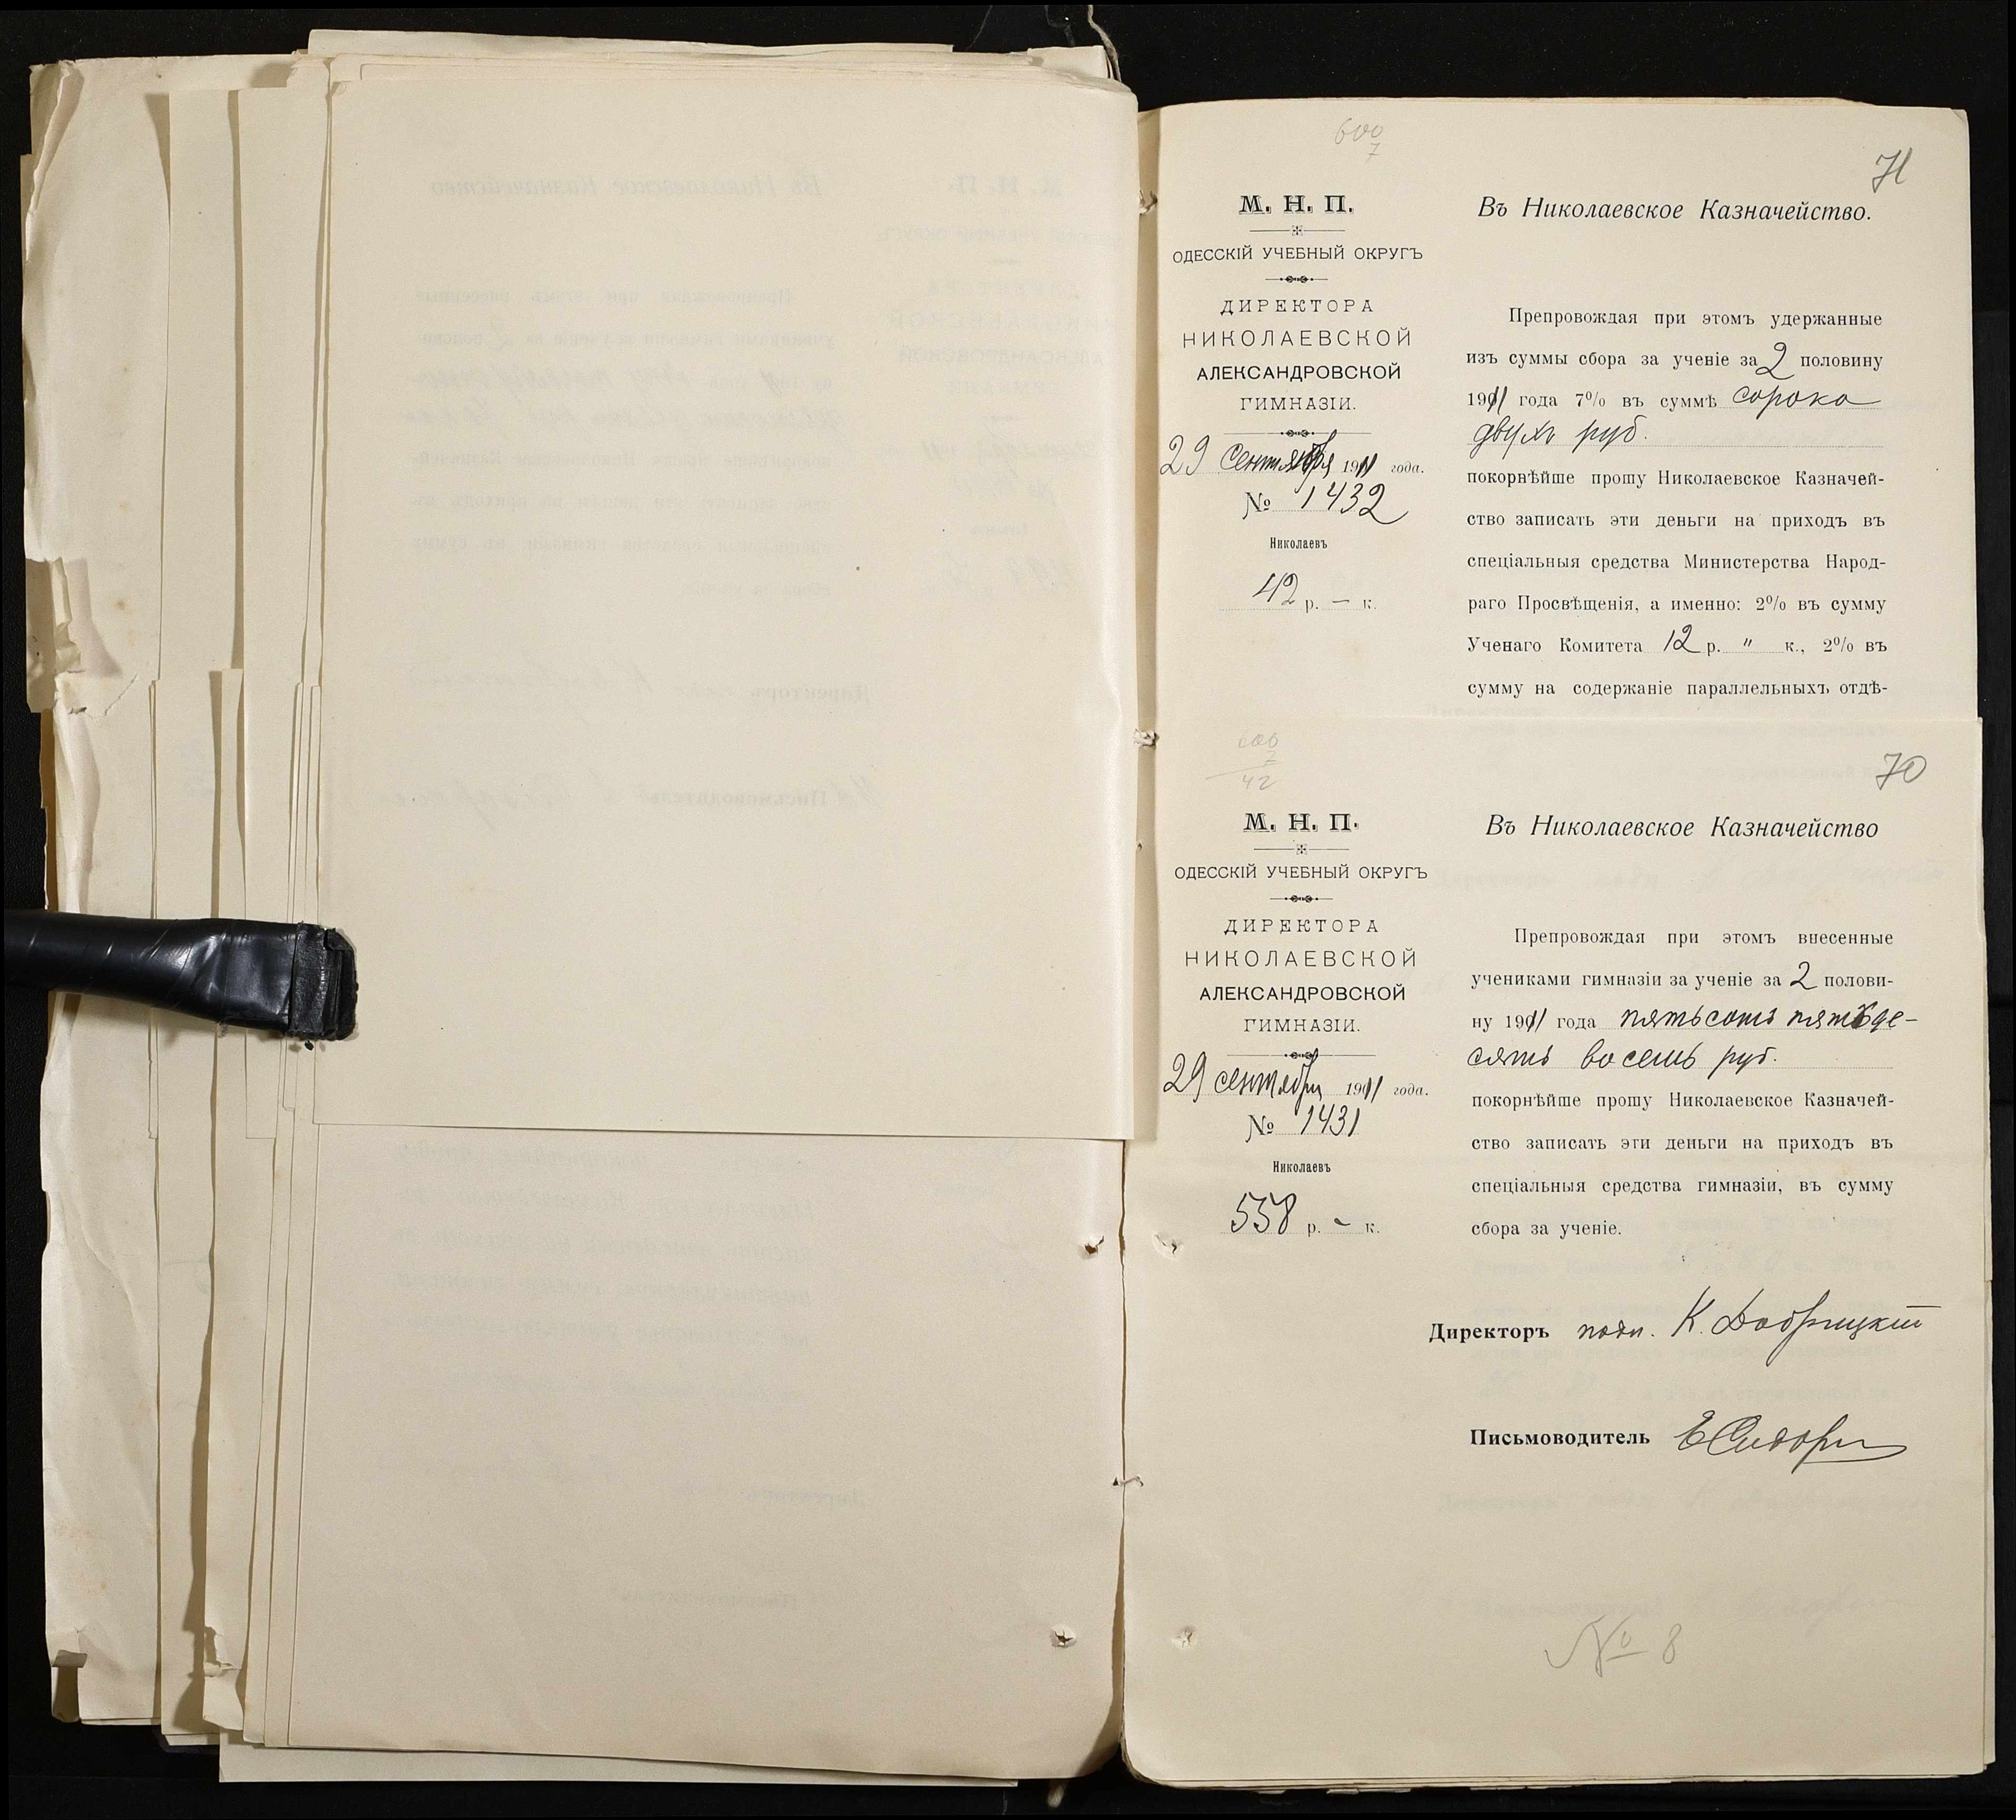 600
7
71
М. Н. П.
ОДЕССКІЙ УЧЕБНЫЙ ОКРУГЪ
ДИРЕКТОРА
НИКОЛАЕВСКОЙ
АЛЕКСАНДРОВСКОЙ
ГИМНАЗІИ.
29 Сентября 1911 года.
№ 1432
Николаевъ
42 р. — к.
Въ Николаевское Казначейство.
Препровождая при этомъ удержанные
изъ суммы сбора за ученіе за 2 половину
1911 года 7% въ суммѣ сорока
двухъ руб.
покорнѣйше прошу Николаевское Казначей-
ство записать эти деньги на приходъ въ
спеціальныя средства Министерства Народ-
раго Просвѣщенія, а именно: 2% въ сумму
Ученаго Комитета 12 р. " к., 2% въ
сумму на содержаніе параллельныхъ отдѣ-
600
7
42
70
М. Н. П.
ОДЕССКІЙ УЧЕБНЫЙ ОКРУГЪ
ДИРЕКТОРА
НИКОЛАЕВСКОЙ
АЛЕКСАНДРОВСКОЙ
ГИМНАЗІИ.
29 сентября 1911 года.
№ 1431
Николаевъ
558 р. - к.
Въ Николаевское Казначейство
Препровождая при этомъ внесенные
учениками гимназіи за ученіе за 2 полови-
ну 1911 года пятьсотъ пятьде-
сятъ восемь руб.
покорнѣйше прошу Николаевское Казначей-
ство записать эти деньги на приходъ въ
спеціальныя средства гимназіи, въ сумму
сбора за ученіе.
Директоръ подп. К. Добрицкій
Письмоводитель
№ 8